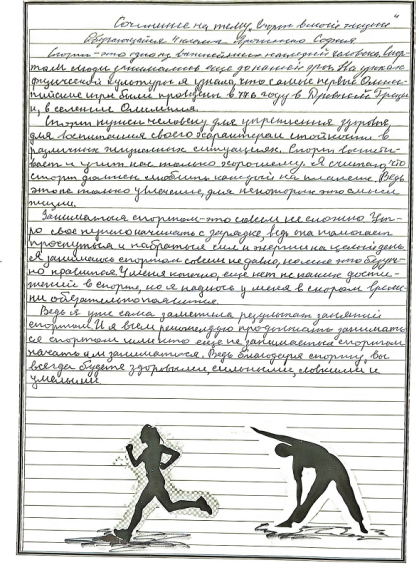 Сочинение на тему "Спорт в моей жизни"
Обучающейся 4 класса Софии
Спорт – это одно из важнейших занятий человека. Спор-
том люди занимались еще до нашей эры. На уроках
физической культуры я узнала, что самые первый Олим-
пийские игры были проведены в 776 году в Древней Греци-
и, в селении Олимпия.
Спорт нужен человеку для укрепления здоровья,
для воспитания своего характера и стойкости в
различных жизненных ситуациях. Спорт воспиты-
вает и учит нас только хорошему. Я считаю, что
спорт должен любить каждый на планете. Ведь
это не только увлечение, для некоторых это смысл
жизни.
Заниматься спортом – это совсем не сложно. Ут-
ро свое нужно начинать с зарядки, ведь она помогает
проснуться и набраться сил и энергии на целый день.
Я занимаюсь спортом совсем недавно, но мне это
нравится. У меня конечно, еще нет больших достиже-
жений в спорте, но я надеюсь у меня в скором време-
ни обязательно появится.
Ведь я уже сама заметила результат занятий
спортом. И я всем рекомендую продолжать занимать-
ся спортом или кто еще не занимается спортом
начать им заниматься. Ведь благодаря спорту, вы
всегда будете здоровыми, сильными, ловкими и
умелыми.